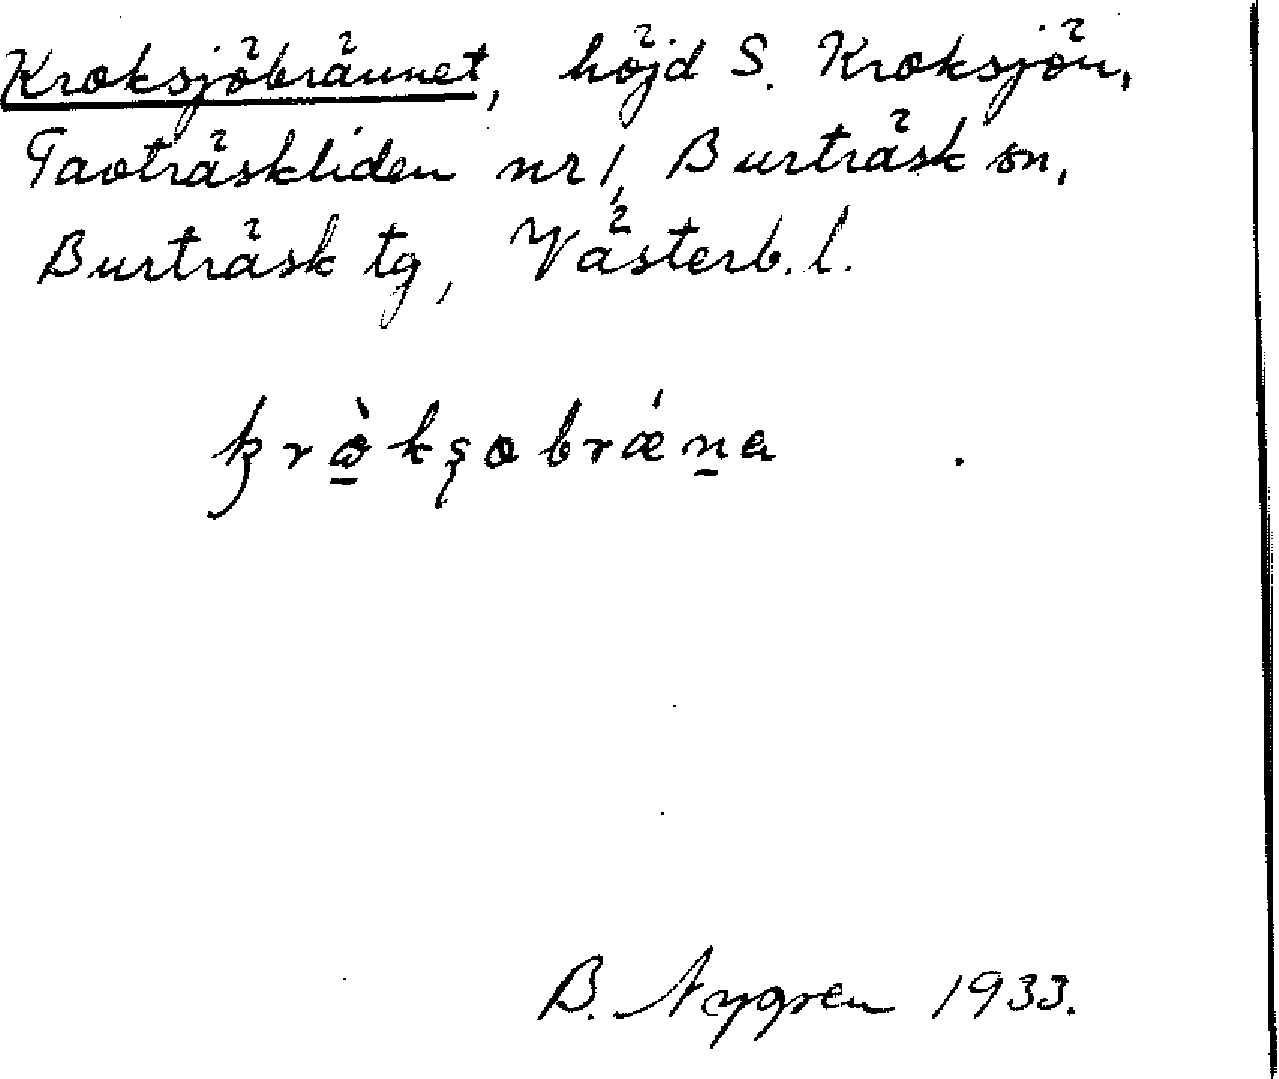 Kroksjöbrännet, höjd S. Kroksjön,
Tavträskliden nr 1, Burträsk sn,
Burträsk tg, Västerb. l.
B. Nygren 1933.